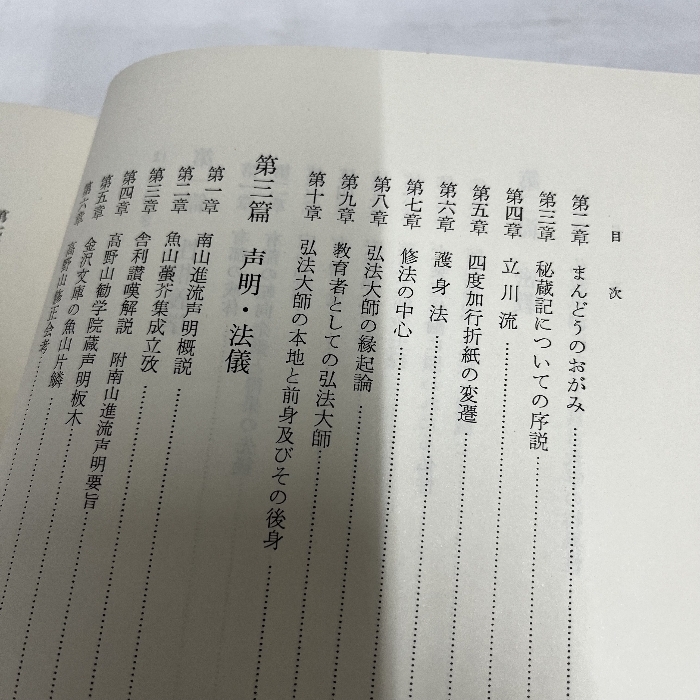 目次
第二章 まんどうのおがみ……………
第三章 秘蔵記についての序説……………
第四章 立川流……………
第五章 四度加行折紙の変遷……………
第六章 護身法……………
第七章 修法の中心……………
第八章 弘法大師の縁起論……………
第九章 教育者としての弘法大師……………
第十章 弘法大師の本地と前身及びその後身……………
第三篇 声明・法儀
第一章 南山進流声明概説……………
第二章 魚山蠆芥集成立攷……………
第三章 舎利讃嘆解説 附南山進流声明要旨……………
第四章 高野山勧学院蔵声明板木……………
第五章 金沢文庫の魚山片鱗……………
第六章 高野山修正会考……………